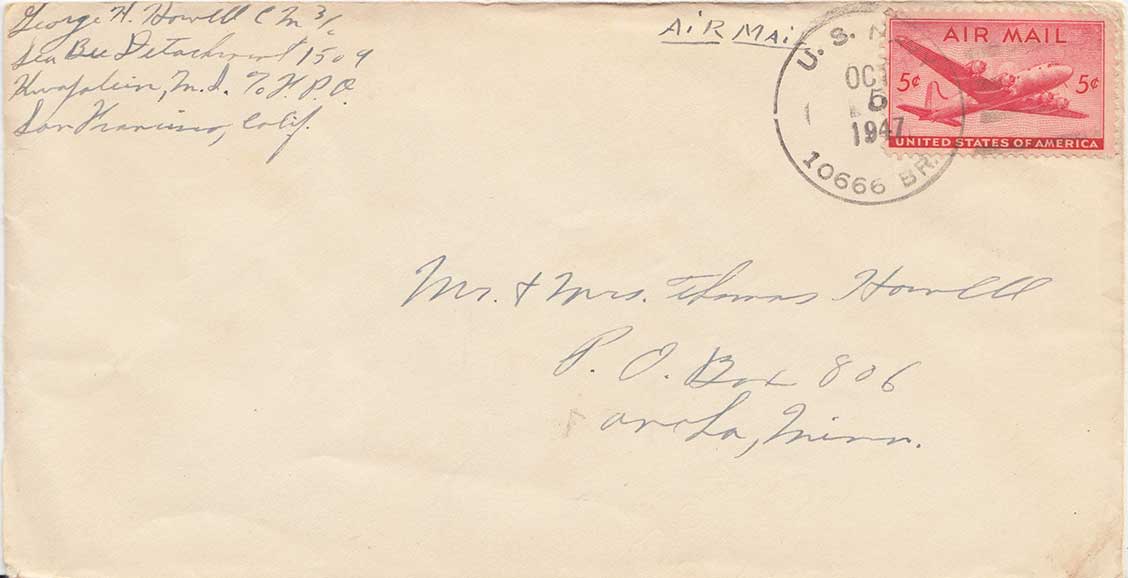 George H. Howell C M 3/c
Sea Bee Detachment 1509
Kwajalein, M.I. % F.P.O.
San Francisco, Calif.
AiR MAil
U. S. N
OCT
5
1947
10666 BR.
AIR MAIL
5¢ 5¢
UNITED STATES OF AMERICA
Mr. & Mrs. Thomas Howell
P. O. Box 806
Minn.